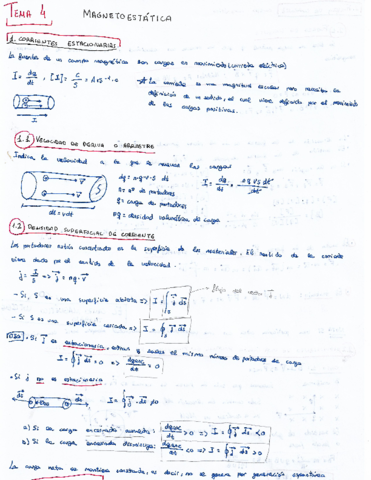 TEMA 4 MAGNETOESTÁTICA
1. CORRIENTES ESTACIONARIAS
La fuente de un campo magnético son cargas en movimiento (corriente eléctrica)
I = dq/dt · [I] = C/S = A → La corriente es una magnitud escalar pero necesita la
definición de un sentido, el cual viene definido por el movimiento
de las cargas positivas.
I
1.1 VELOCIDAD DE DERIVA O ARRASTRE
Indica la velocidad a la que se mueven las cargas
dq = n·q·v·S dt
I = dq/dt = nqvS dt/dt
n = nº de portadores
q = carga de portadores
dℓ = vdt
nq = densidad volumétrica de carga
1.2 DENSIDAD SUPERFICIAL DE CORRIENTE
Los portadores están en la superficie de los materiales. El sentido de la corriente
viene dado por el sentido de la velocidad.
j = I/S => j = nq·v
- Si S es una superficie abierta => I = ∫s j ds
- Si S es una superficie cerrada => I = ∮s j ds
- Si j es estacionaria, entran y salen el mismo número de portadores de carga
I = ∮ j ds = 0 => dqenc/dt = 0
- Si j no es estacionaria
ds ds I = ∮ j ds ≠ 0
a) Si la carga encerrada aumenta: dqenc/dt > 0 => I = ∮ j ds < 0
b) Si la carga encerrada disminuye: dqenc/dt < 0 => I = ∮ j ds > 0
La carga neta se mantiene constante, es decir, no se genera por generación espontánea